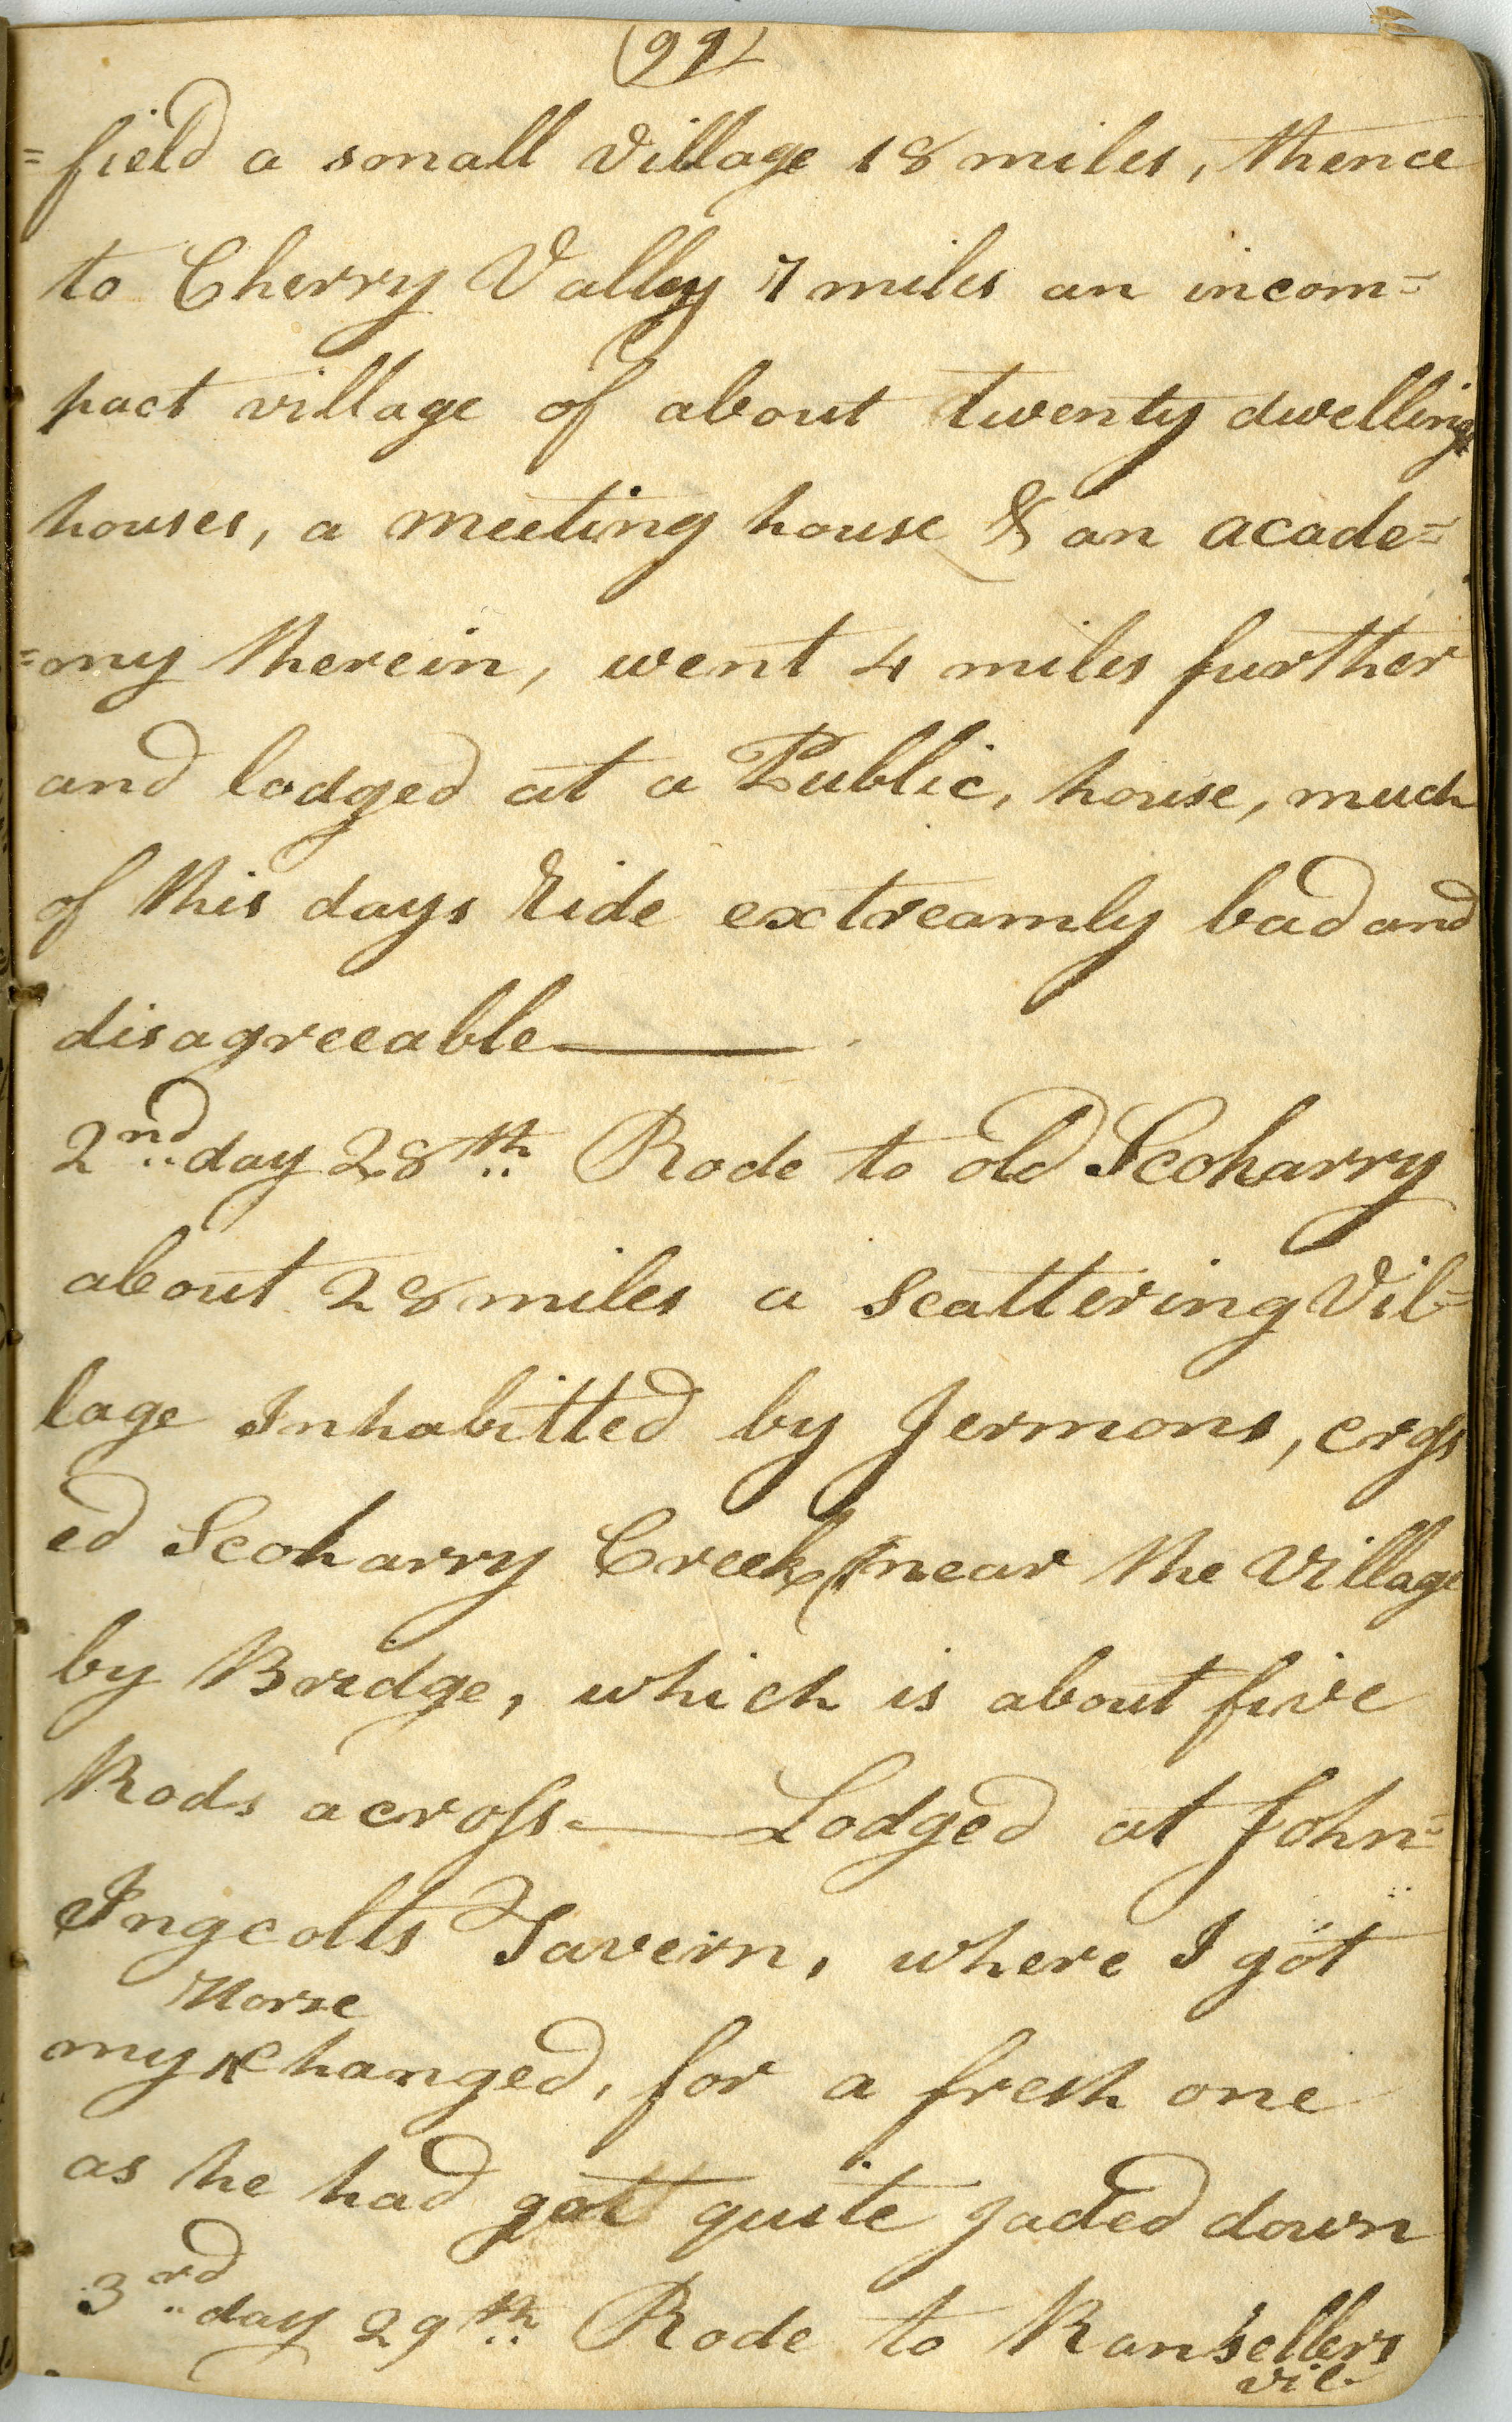 (99)
=field a small Village 18 miles, thence
to Cherry Valley 7 miles an incom=
pact village of about twenty dwelling
houses, a meeting house & an acade=
=my therein, went 4 miles further
and lodged at a Public, house, much
of this days Ride extreamly bad and
disagreeable
2nd day 28th Rode to old Scoharry
about 28 miles a Scattering Vil=
lage Inhabitted by Jermons, cross
ed Scoharry Creek near the Village
by Bridge, which is about five
Rods across — Lodged at John=
Ingcolts Tavern, where I got
Horse
my changed, for a fresh one
as he had got quite jaded down
3rd day 29th Rode to Ransellers
vil